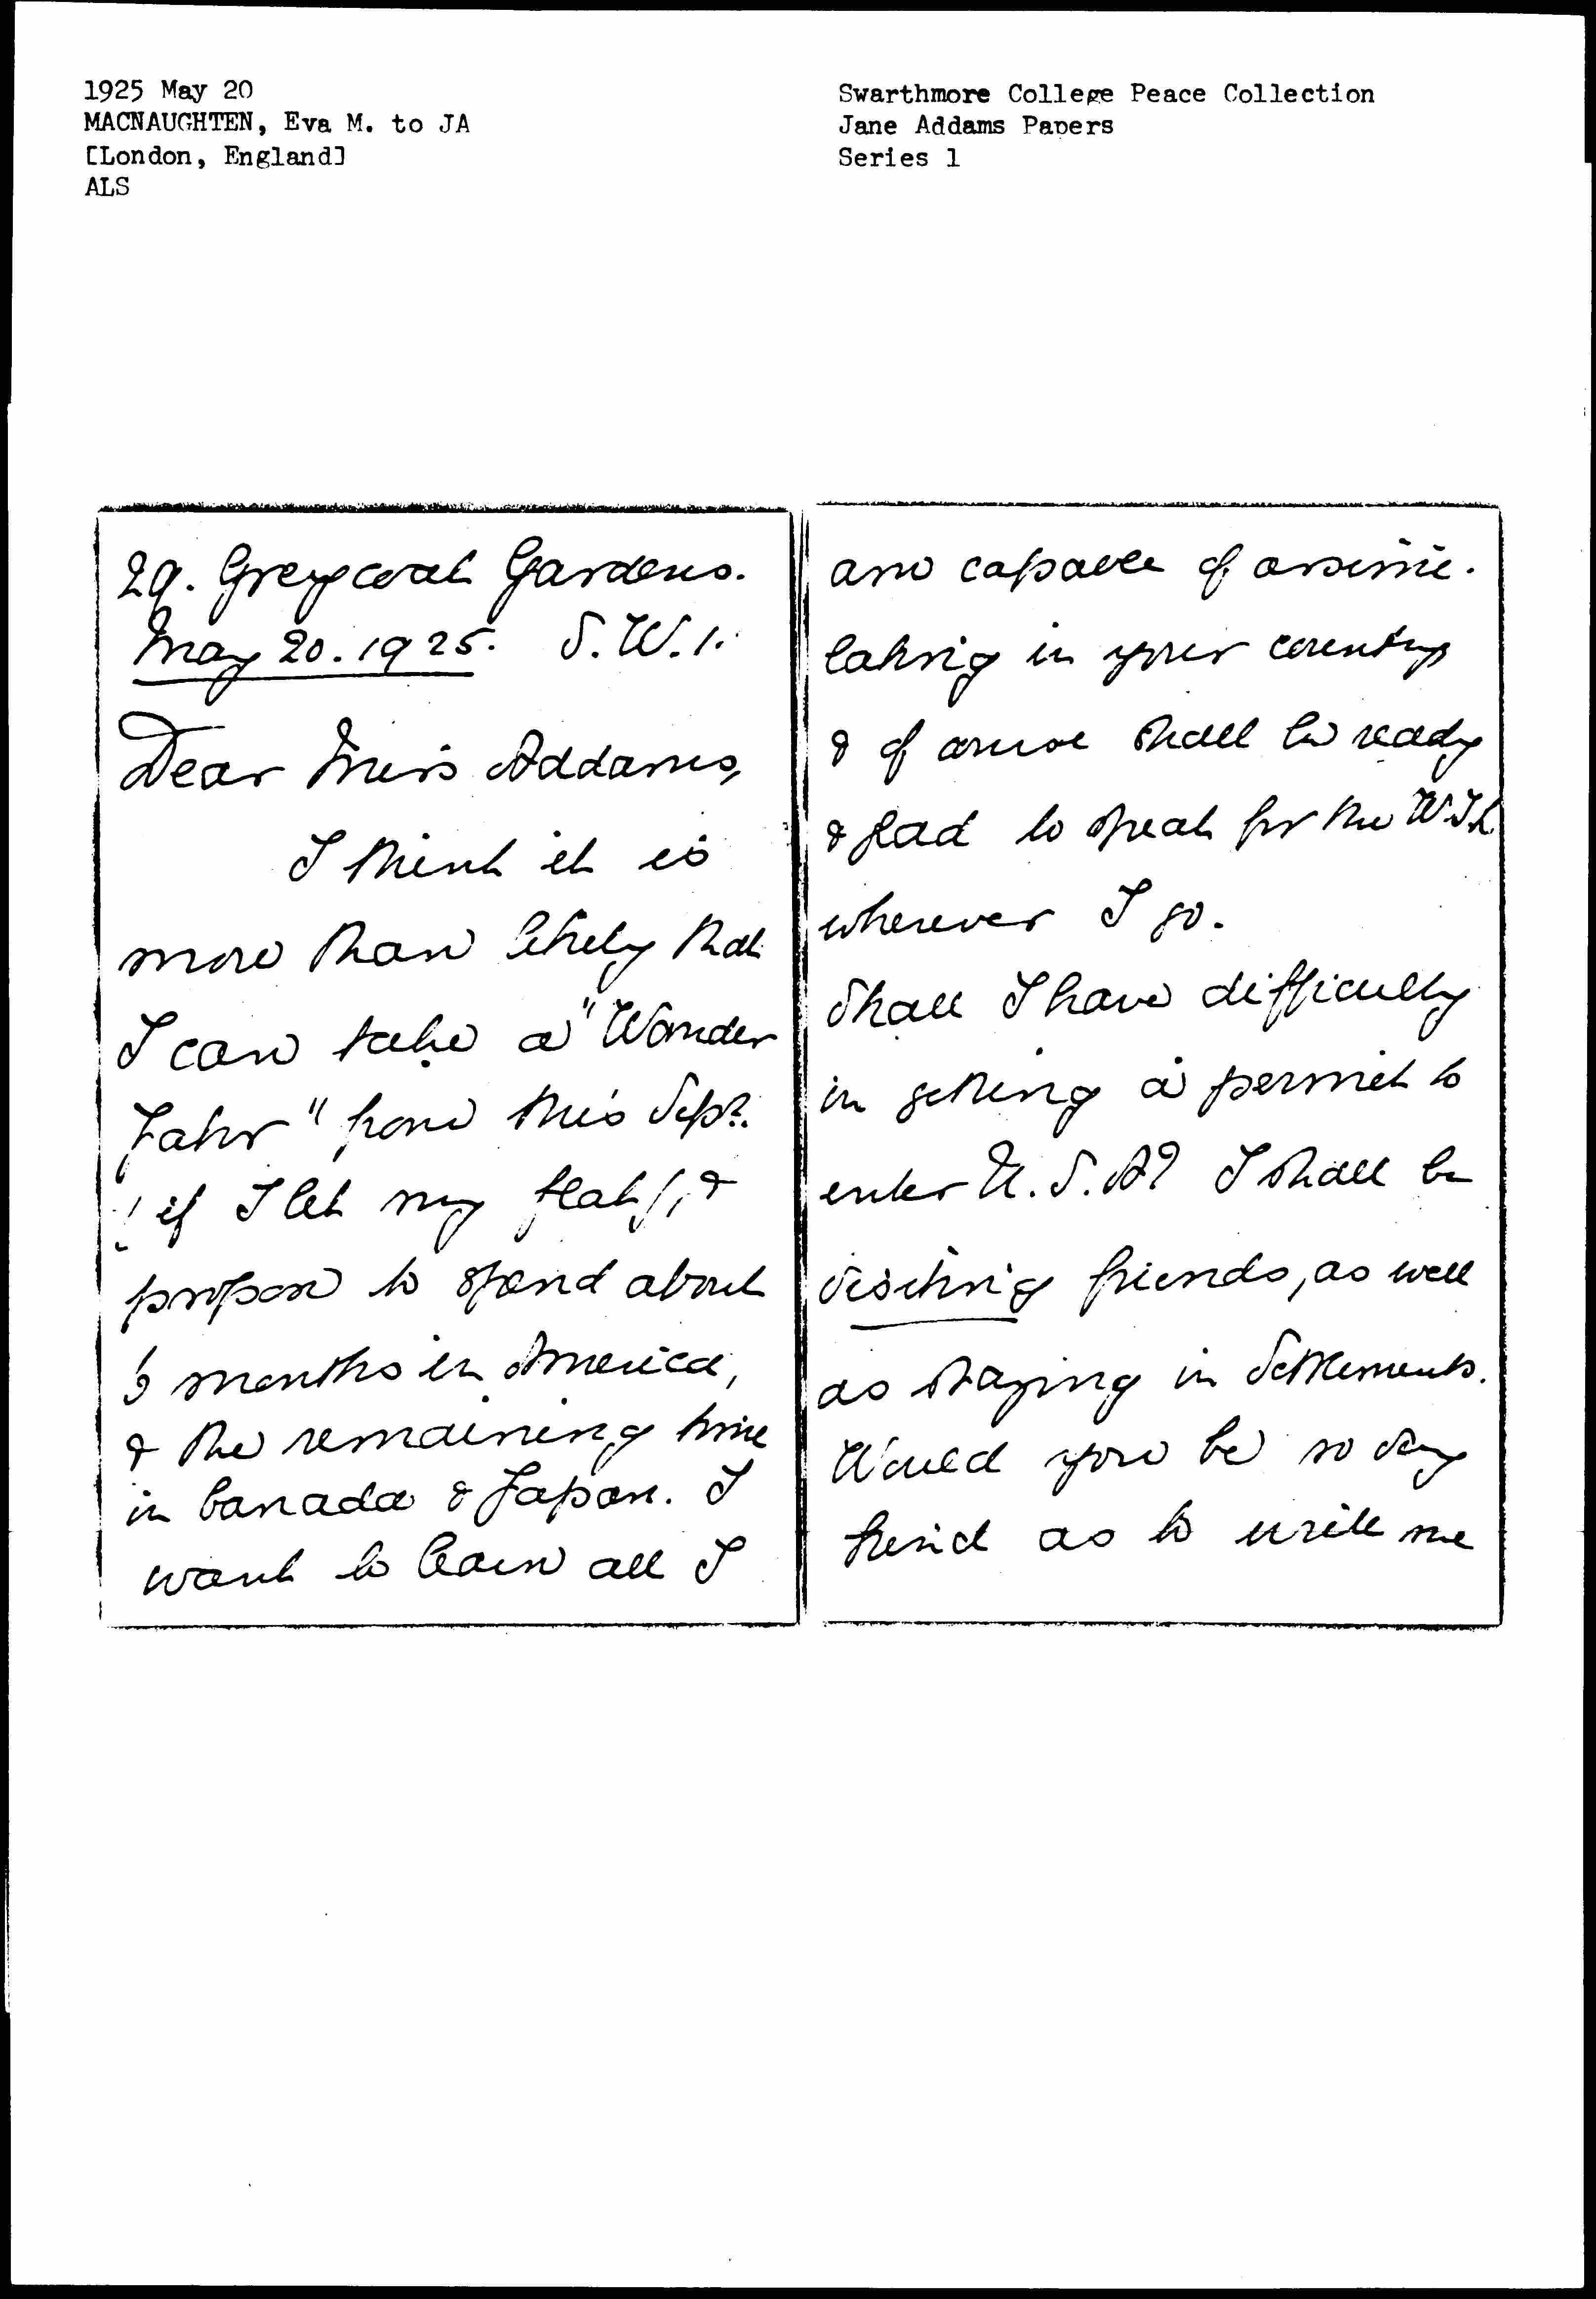 1925 May 20
MACNAUGHTEN, Eva M. to JA
[London, England]
ALS
Swarthmore College Peace Collection
Jane Addams Papers
Series 1
29. Greycoat Gardens.
May 20. 1925. S.W.1.
Dear Miss Addams,
I think it is
more than likely that
I can take a "Wander
Jahr" from this Sept.
(if I let my flat), &
propose to spend about
months in America,
& the remaining time
in Canada & Japan. I
want to learn all I
am capable of assimi-
lating in your country
& of course shall be ready
& glad to speak for the W.I.L
wherever I go.
Shall I have difficulty
in getting a permit to
enter U.S.A? I shall be
visiting friends, as well
as staying in Settlements.
Would you be so very
kind as to write me